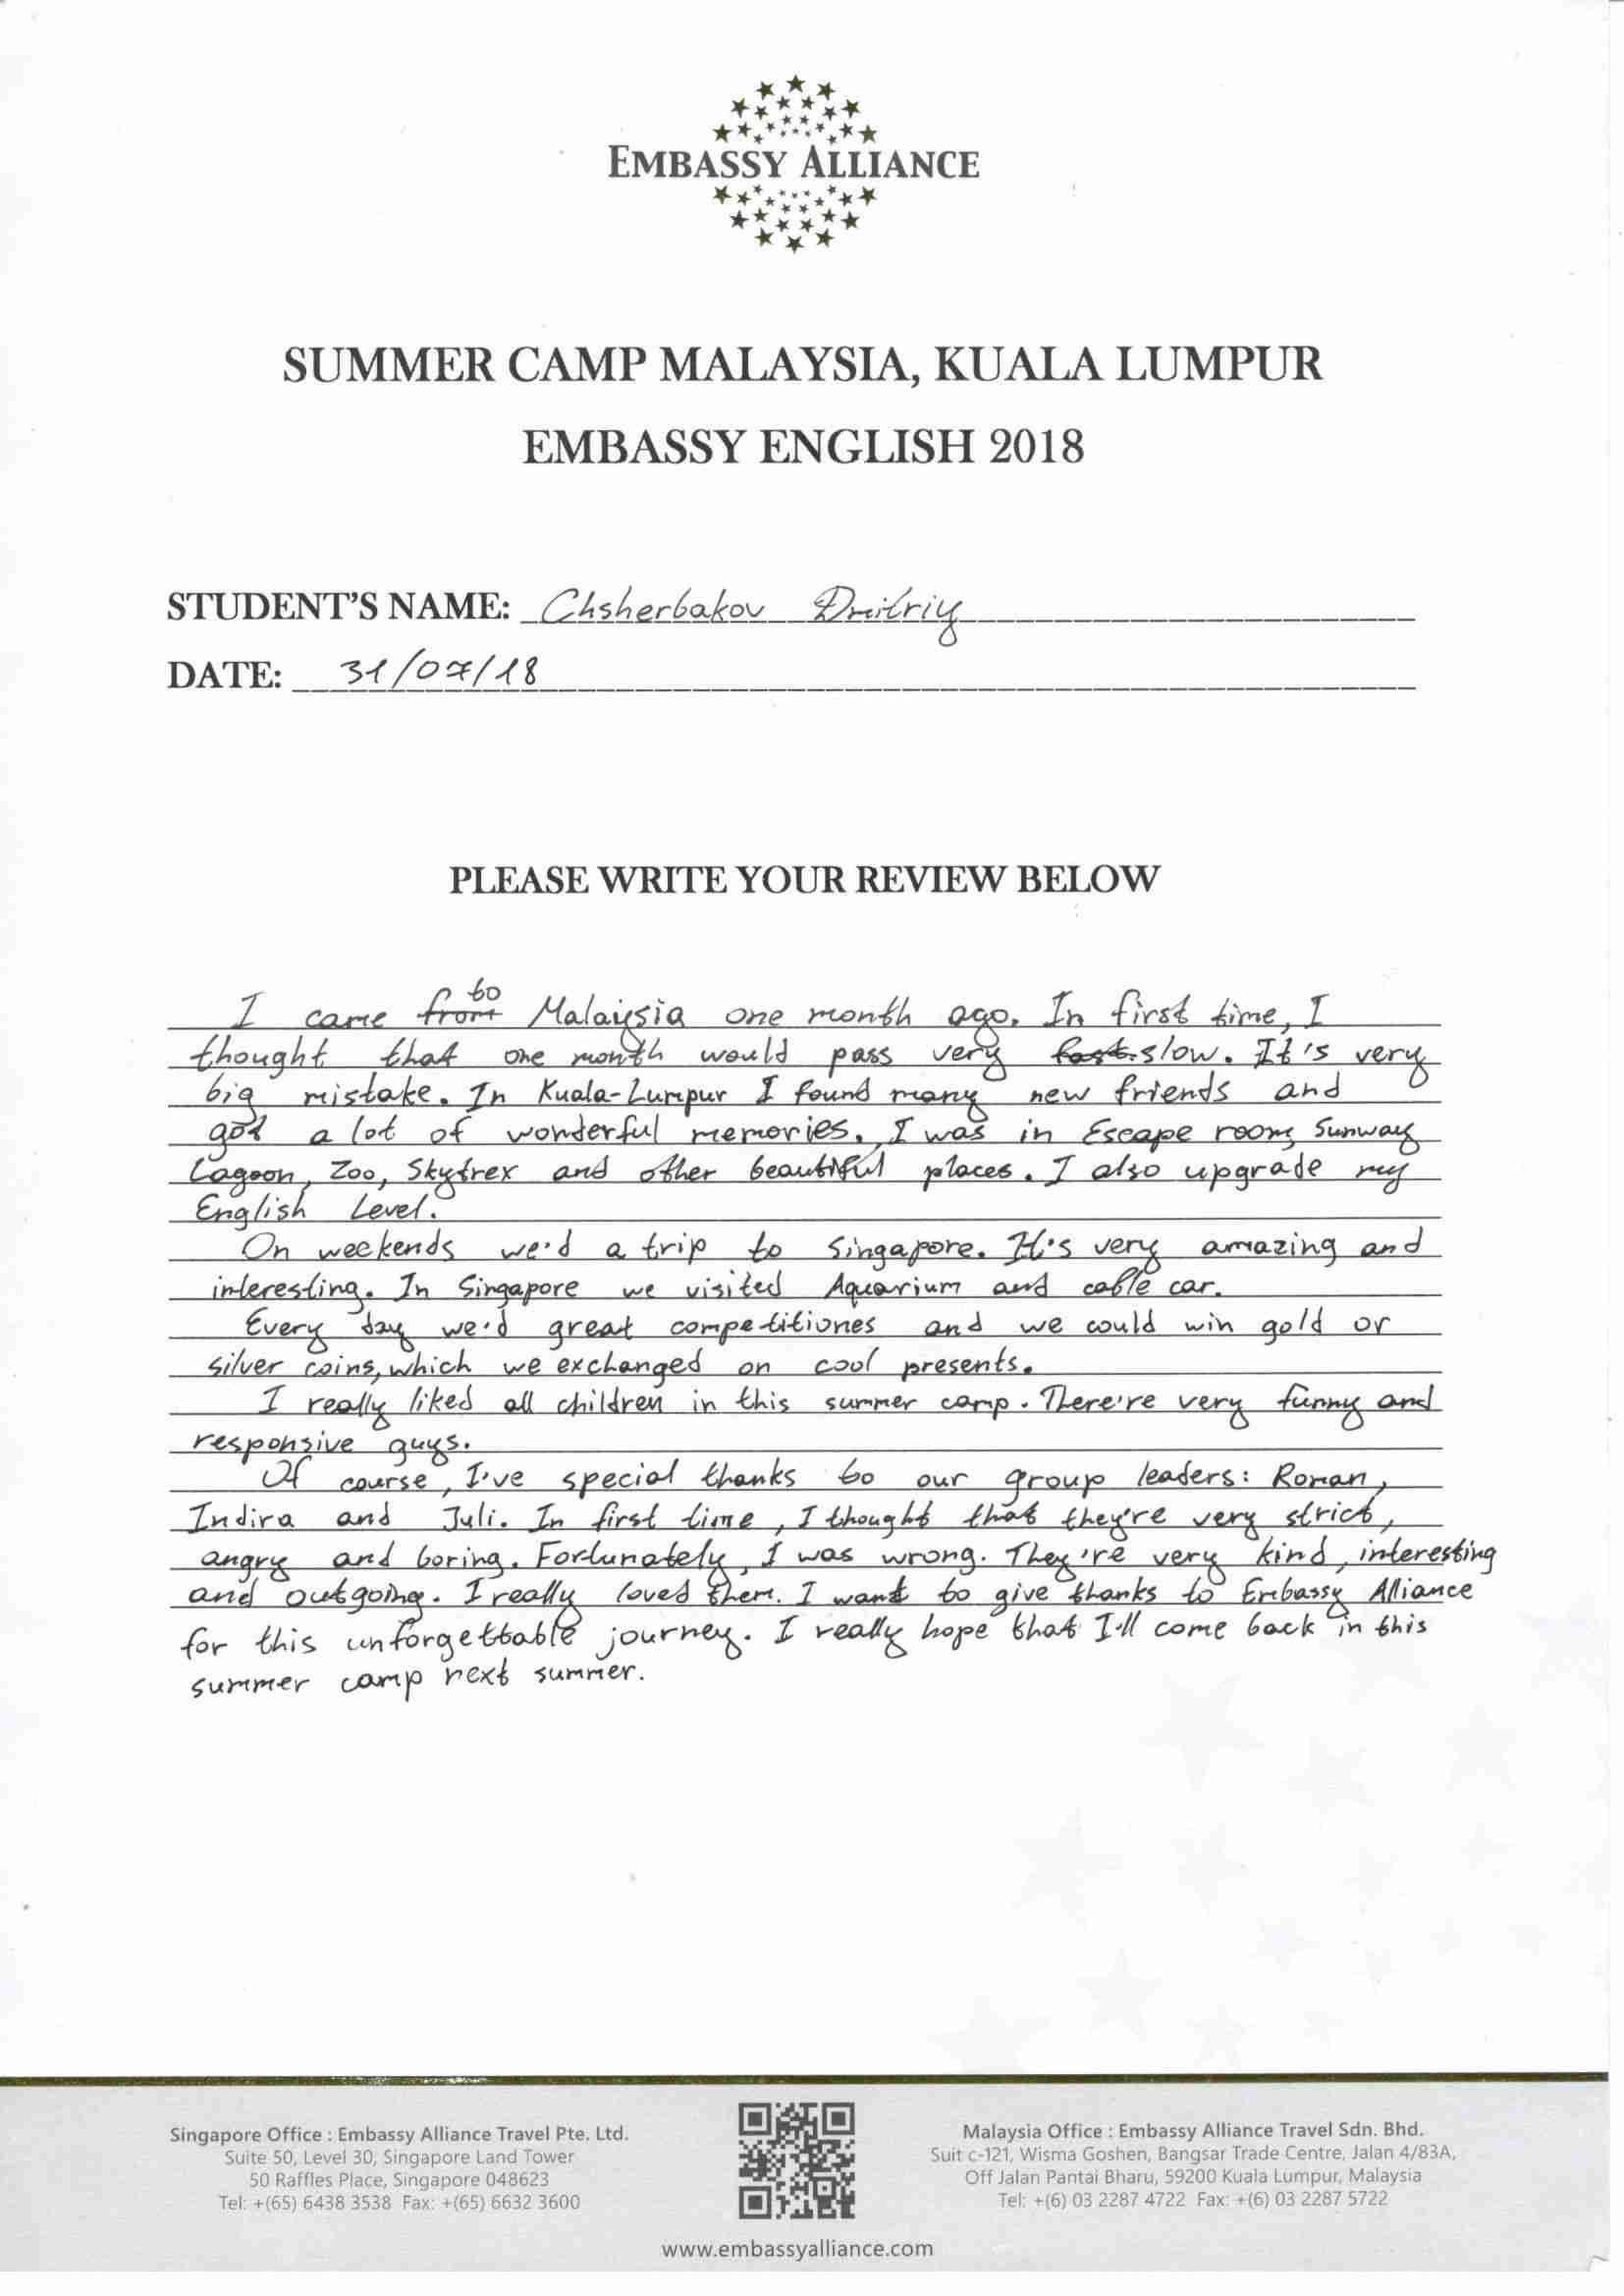 EMBASSY ALLIANCE
SUMMER CAMP MALAYSIA, KUALA LUMPUR
EMBASSY ENGLISH 2018
STUDENT'S NAME: Chsherbakov Dmitriy
DATE: 31/07/18
PLEASE WRITE YOUR REVIEW BELOW
I came from to Malaiysia one month ago. In first time, I
thought that one month would pass very fast. slow. It's very
big mistake. In Kuala-Lumpur I found many new friends and
got a lot of wonderful memories. I was in Escape room, Sunway
Lagoon, Zoo, Skytrex and other beautiful places. I also upgrade my
English Level.
On weekends we'd a trip to Singapore. It's very amazing and
interesting. In Singapore we visited Aquarium and cable car.
Every day we'd great competitiones and we could win gold or
silver coins, which we exchanged on cool presents.
I really liked all children in this summer camp. There're very funny and
responsive guys.
Of course, I've special thanks to our group leaders: Roman,
Indira and Juli. In first time, I thought that they're very strict,
angry and boring. Fortunately, I was wrong. They're very kind, interesting
and outgoing. I really loved them. I want to give thanks to Embassy Alliance
for this unforgettable journey. I really hope that I'll come back in this
summer camp next summer.
Singapore Office : Embassy Alliance Travel Pte. Ltd.
Suite 50, Level 30, Singapore Land Tower
50 Raffles Place, Singapore 048623
Tel: +(65) 6438 3538 Fax: +(65) 6632 3600
Malaysia Office : Embassy Alliance Travel Sdn. Bhd.
Suit c-121, Wisma Goshen, Bangsar Trade Centre, Jalan 4/83A,
Off Jalan Pantai Bharu, 59200 Kuala Lumpur, Malaysia
Tel: +(6) 03 2287 4722 Fax: +(6) 03 2287 5722
www.embassyalliance.com